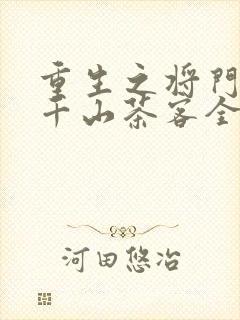 重生之将门
千山茶客全
河田悠冶